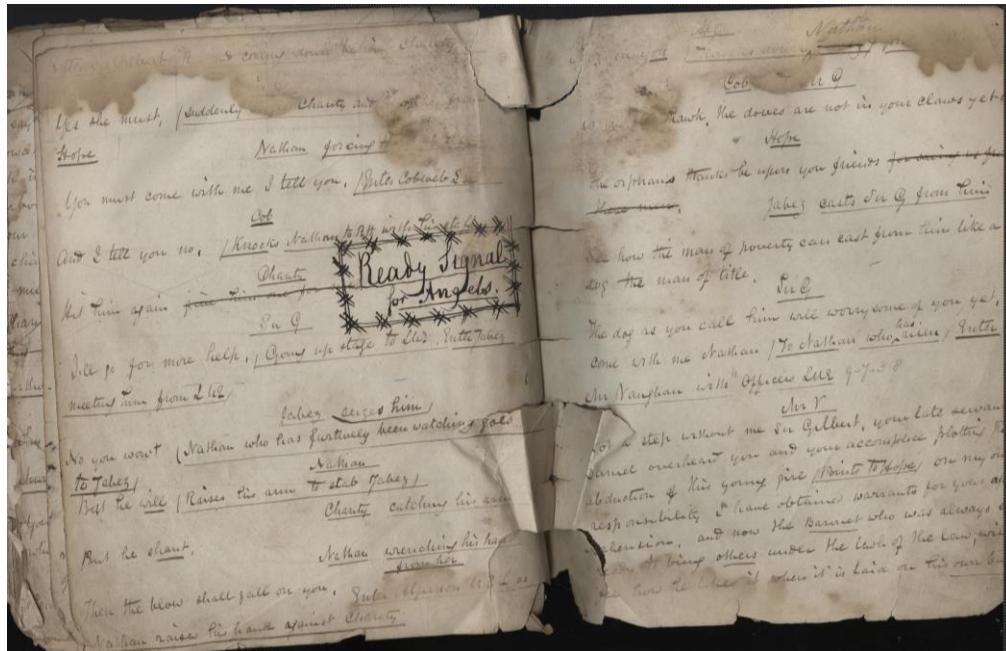 and comes down
Charity
Yes she must, (Suddenly Charity and
Hope
Nathan forcing
You must come with me I tell you. (Enter Cobweb
Cob
And I tell you no. (Knocks Nathan to
Charity
Hit him again give him one for
Ready Signal
for Angels.
Sir G
I'll go for more help. (Going up stage to L.U.E. Enter Jabez
meeting him from L.U.E.)
Jabez seizes him)
No you won't (Nathan who has furtively been watching goes
to Jabez)
Nathan
But he will (Raises his arm to stab Jabez)
Charity catching his arm
But he shant.
Nathan wrenching his hand
from her
Then the blow shall fall on you. Enter
Nathan raises his hand against Charity
Nathan
you
Cob Sir G
Hawk. The doves are not in your claws yet
Hope
The orphans thanks be upon you friends for
Jabez casts Sir G from him
See how the man of poverty can cast from him like a
dog the man of title.
Sir G
The dog as you call him will worry some of you yet,
come with me Nathan (To Nathan who has risen) Enter
Mr Vaughan with Officers
Mr V
Not a step without me Sir Gilbert, your late servant
Daniel overheard you and your accomplice plotting the
abduction of this young girl (Points to Hope) on my own
responsibility I have obtained warrants for your
and now the Baronet who was always
to bring others under the lash of the law, will
see how he likes it when it is laid on his own